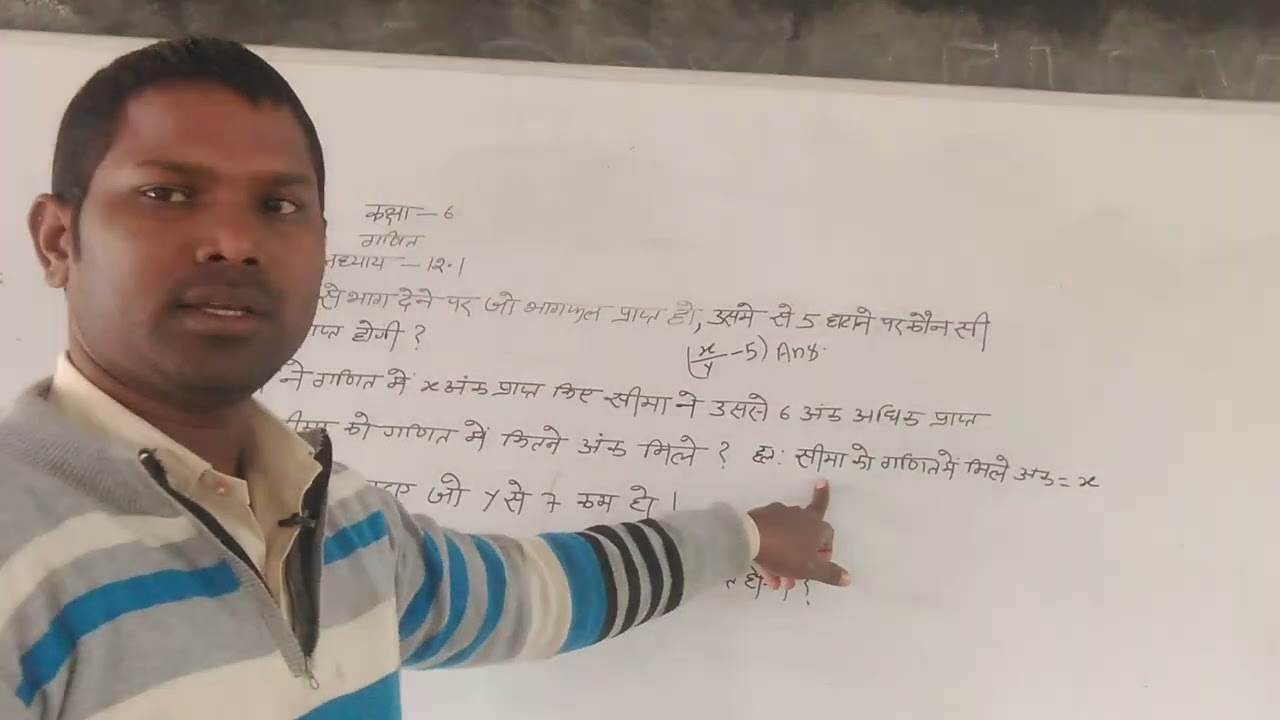 कक्षा – 6
गणित
अध्याय – 12.1
से भाग देने पर जो भागफल प्राप्त हो, उसमे से 5 घटाने पर कौन सी
प्राप्त होगी ?
(x/y - 5) Ans.
ने गणित में x अंक प्राप्त किए सीमा ने उससे 6 अंक अधिक प्राप्त
सीमा को गणित में कितने अंक मिले ? हल: सीमा को गणित में मिले अंक = x
जो y से 7 कम हो ।
?